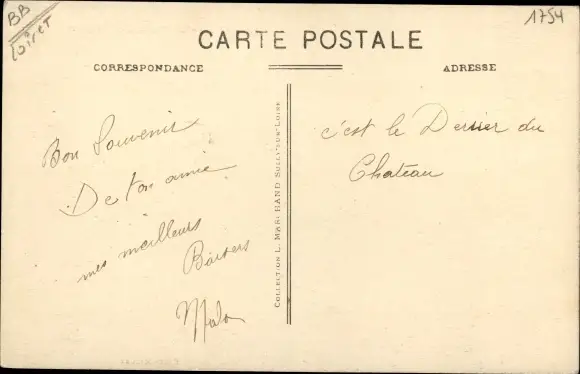 BB
Loiret
1754
CARTE POSTALE
CORRESPONDANCE
ADRESSE
Bon Souvenir
De ton amie
mes meilleurs
Baisers
COLLECTION L. MARCHAND SULLY-SUR-LOIRE
c'est le Derier du
Chateau